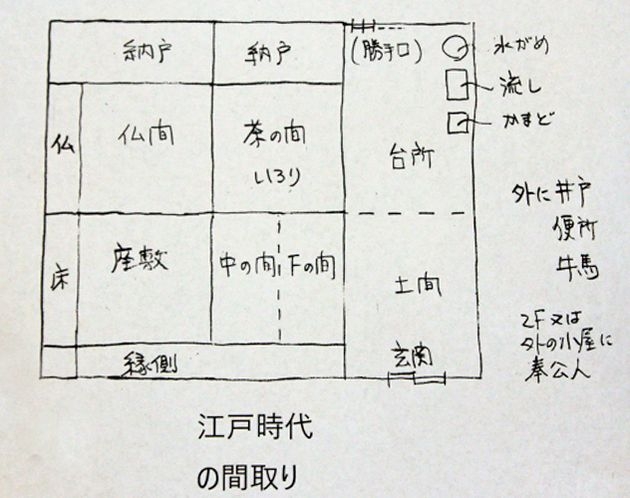 納戸
納戸
(勝手口)
水がめ
流し
かまど
仏
仏間
茶の間
いろり
台所
外に井戸
便所
牛馬
床
座敷
中の間
下の間
土間
2F又は
外の小屋に
奉公人
縁側
玄関
江戸時代
の間取り